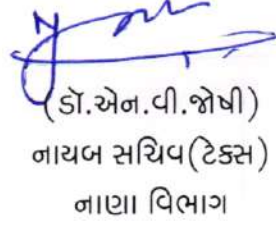 (ડૉ.એન.વી.જોષી)
નાયબ સચિવ(ટેક્સ)
નાણા વિભાગ